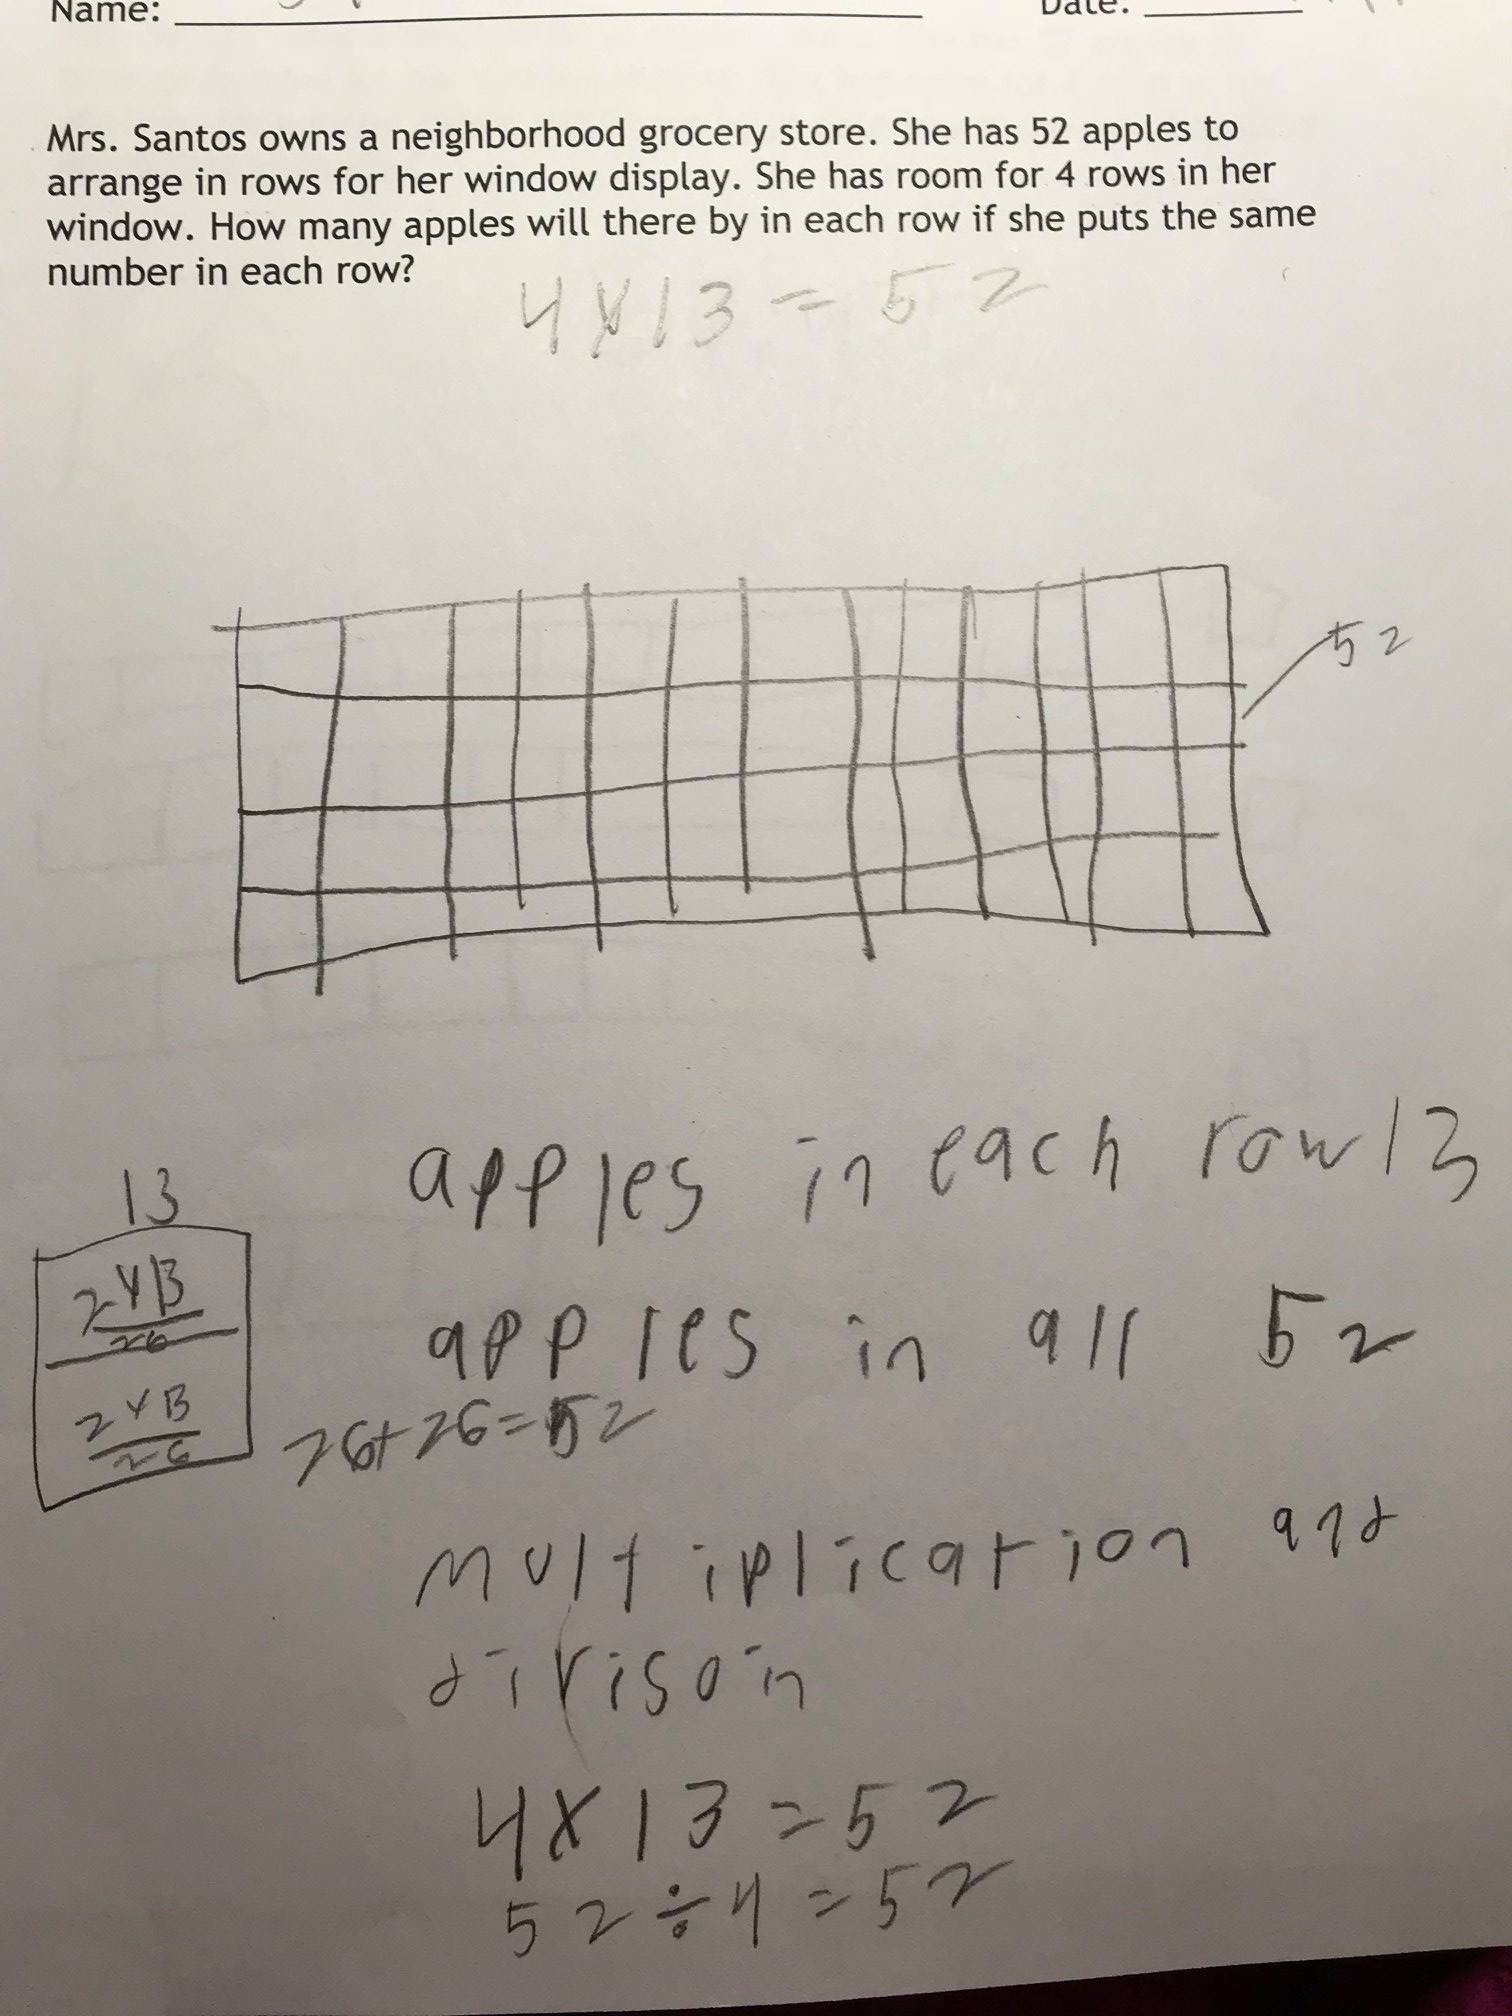 Name:
Date:
Mrs. Santos owns a neighborhood grocery store. She has 52 apples to
arrange in rows for her window display. She has room for 4 rows in her
window. How many apples will there by in each row if she puts the same
number in each row?
4x13=52
52
apples in each row 13
13
2x13
26
apples in all 52
2x13
26
26+26=52
multiplication and
divisoin
4x13=52
52÷4=52